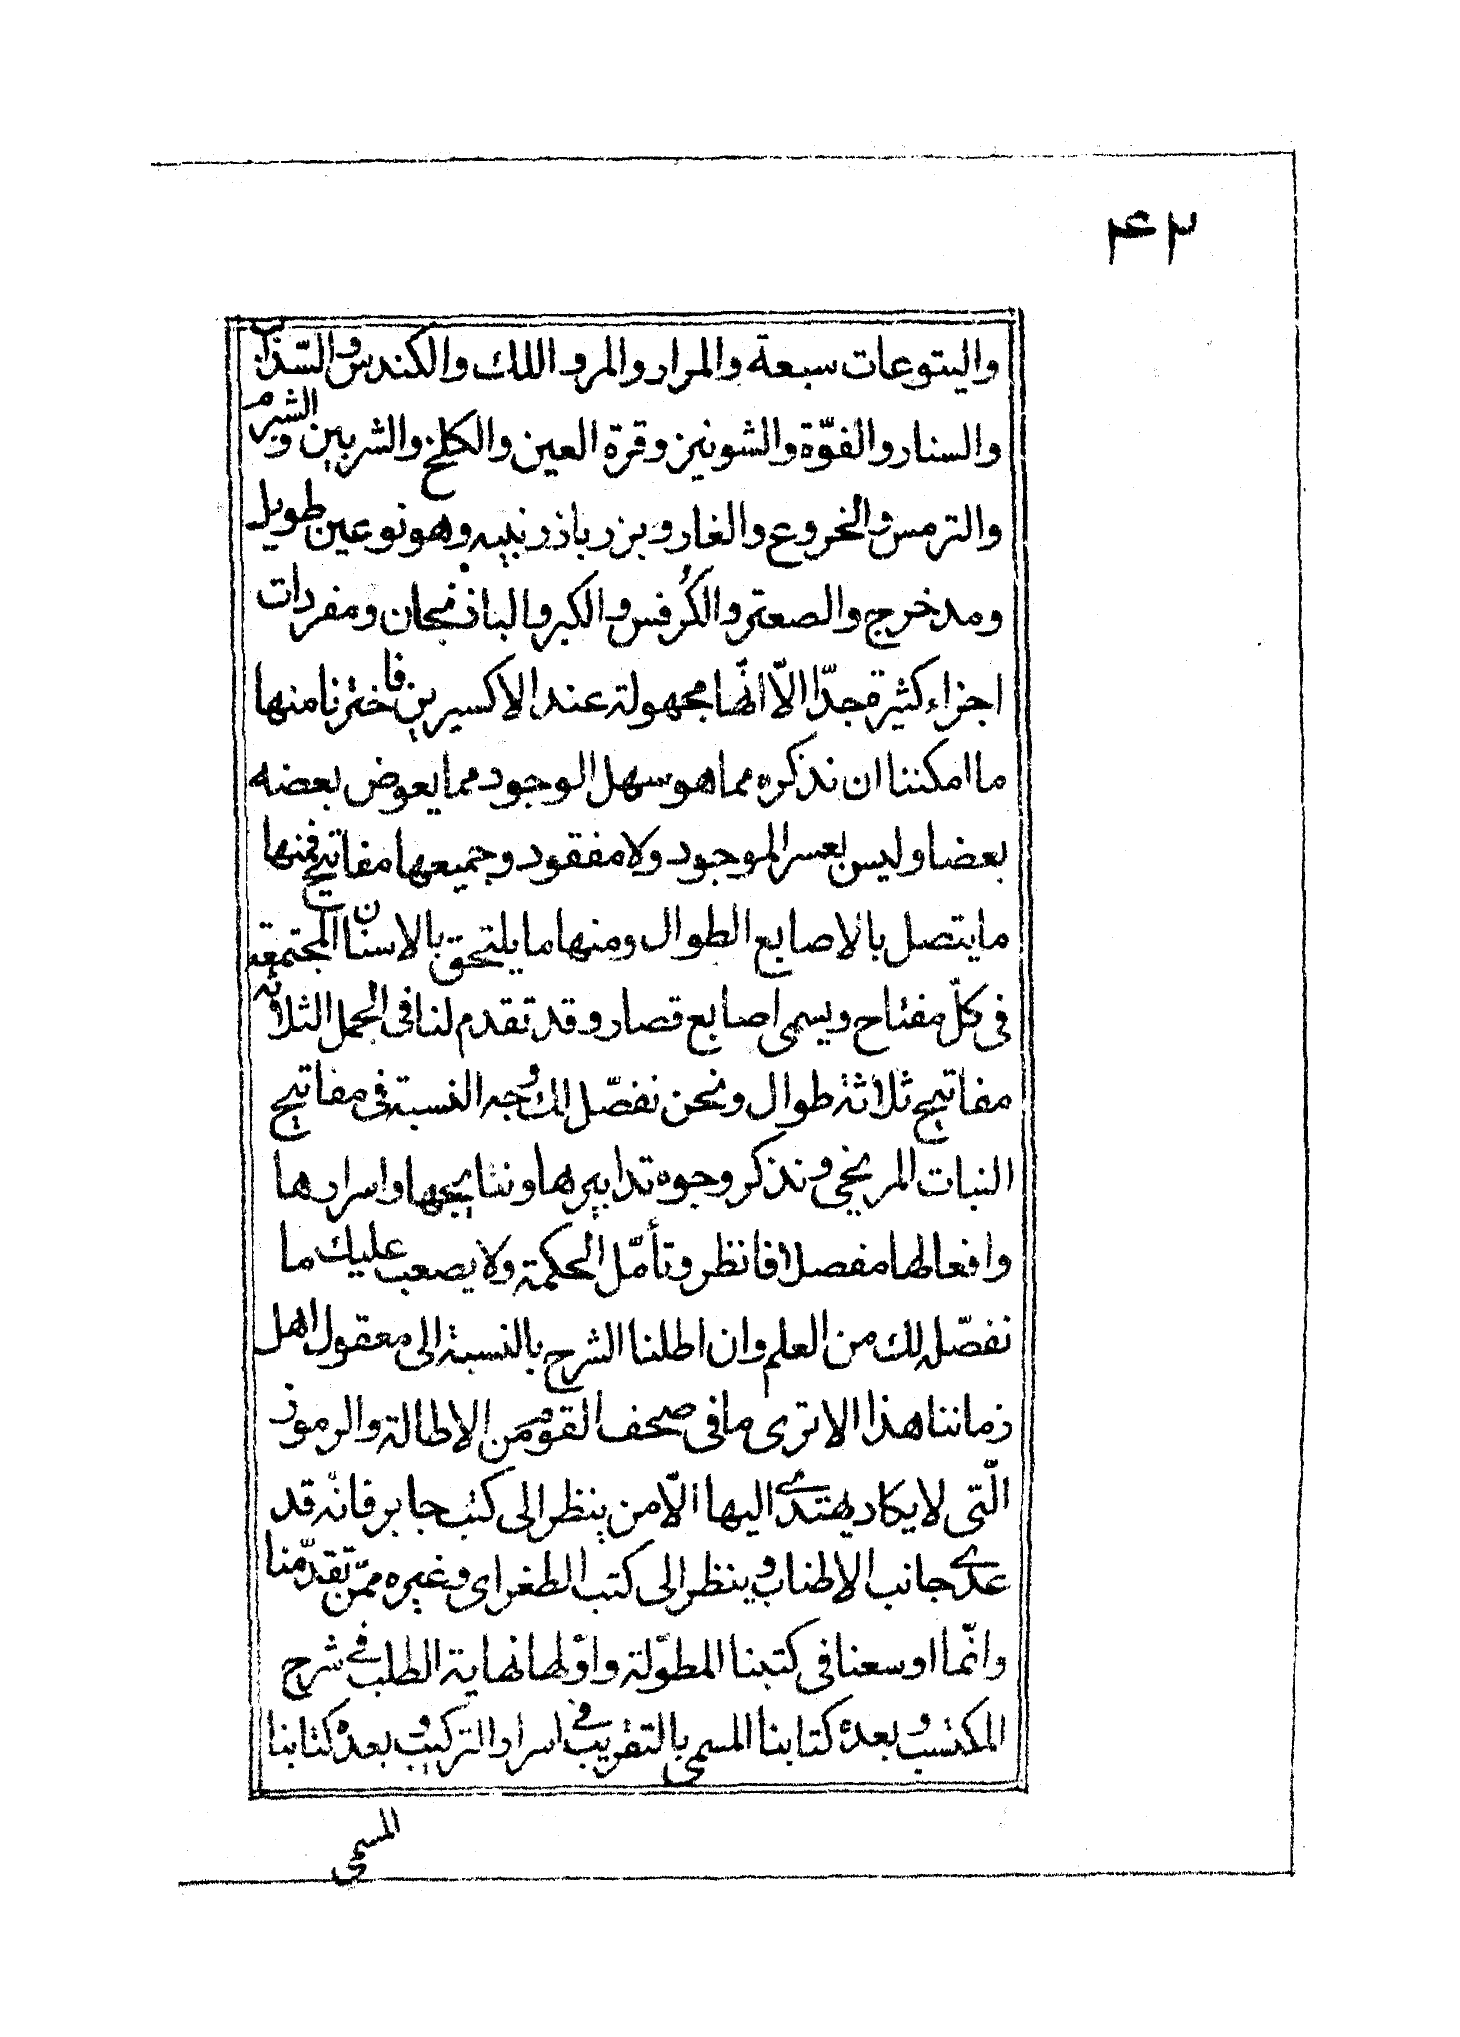 ۴۲
واليتوعات سبعة والمرار والمرو اللك والكندس والسذاب
والسنار والفوّة والشونيز وقرة العين والكلخ والشربين والشبرم
والترمس والخروع والغار وبزر باذرنبيه وهو نوعين طويل
ومدخرج والصعتر والكُرفس والكبر والباذنجان ومفردات
اجزاء كثيرة جدّا الاّ انّها مجهولة عند الاكسيريين فاخترنا منها
ما امكننا ان نذكره مما هو سهل الوجود مما يعوض بعضه
بعضا وليس بعسر الموجود ولا مفقود وجميعها مفاتيح فمنها
ما يتصل بالاصابع الطوال ومنها ما يلتحق بالاسنان المجتمعة
فى كلّ مفتاح ويسمى اصابع قصار وقد تقدم لنا فى الجمل الثلاثه
مفاتيح ثلاثة طوال ونحن نفصّل لك وجه النسبة فى مفاتيح
النبات المريخى ونذكر وجوه تدابيرها ونتايجها واسرارها
وافعالها مفصلا فانظر وتأمّل الحكمة ولا يصعب عليك ما
نفصّله لك من العلم وان اطلنا الشرح بالنسبة الى معقول اهل
زماننا هذا الا ترى ما فى صحف القوم من الاطالة والرموز
الّتى لا يكاد يهتدى اليها الاّ من ينظر الى كتب جابر فانّه قد
عدى جانب الاطناب وينظر الى كتب الطغراى وغيره ممّن تقدّمنا
وانّما اوسعنا فى كتبنا المطوّلة واوّلها نهاية الطلب فى شرح
المكتسب وبعده كتابنا المسمى بالتقريب فى اسرار التركيب وبعده كتابنا
المسمى